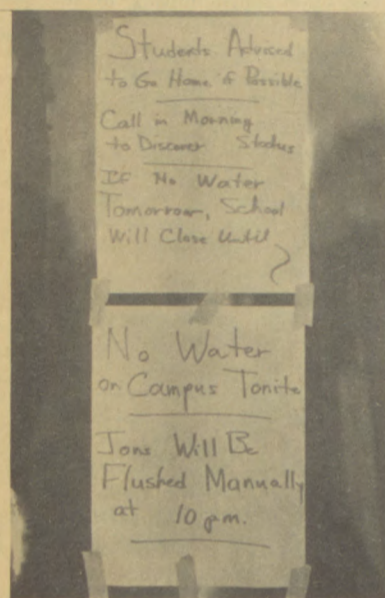 Students Advised
to Go Home if Possible
Call in Morning
to Discover Status
If No Water
Tomorrow, School
Will Close Until
?
No Water
on Campus Tonite
Jons Will Be
Flushed Manually
at 10 pm.